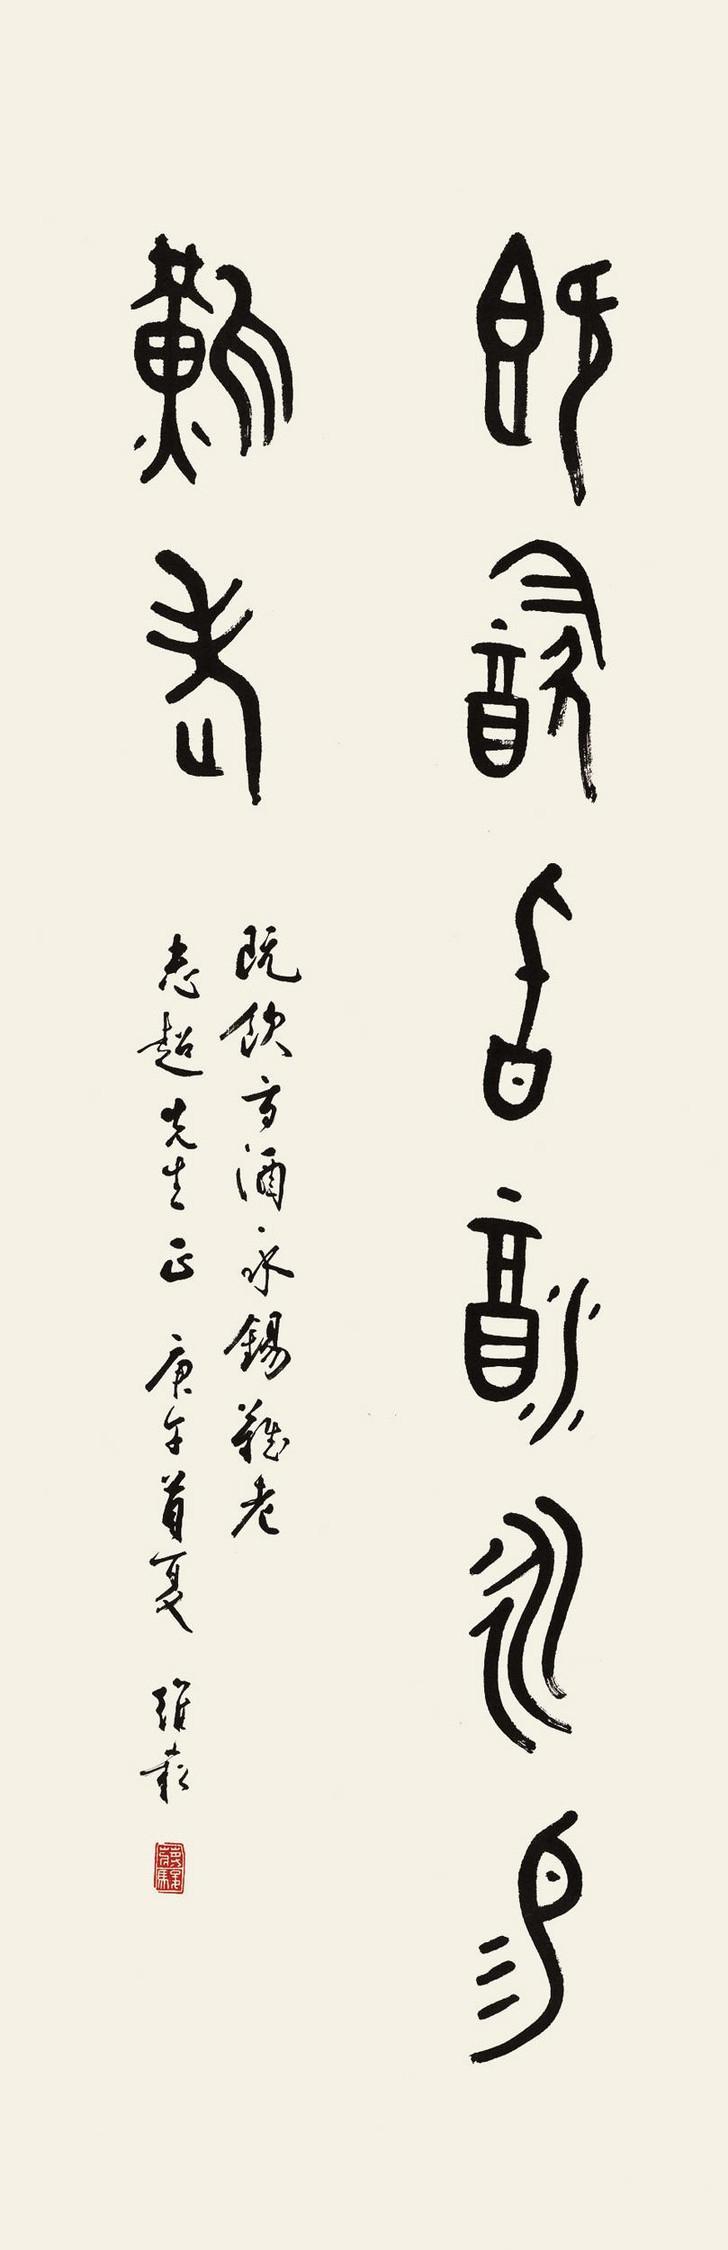 既飲旨酒永錫
難老
既飲旨酒永錫難老
志超先生正 庚午首夏 維崧